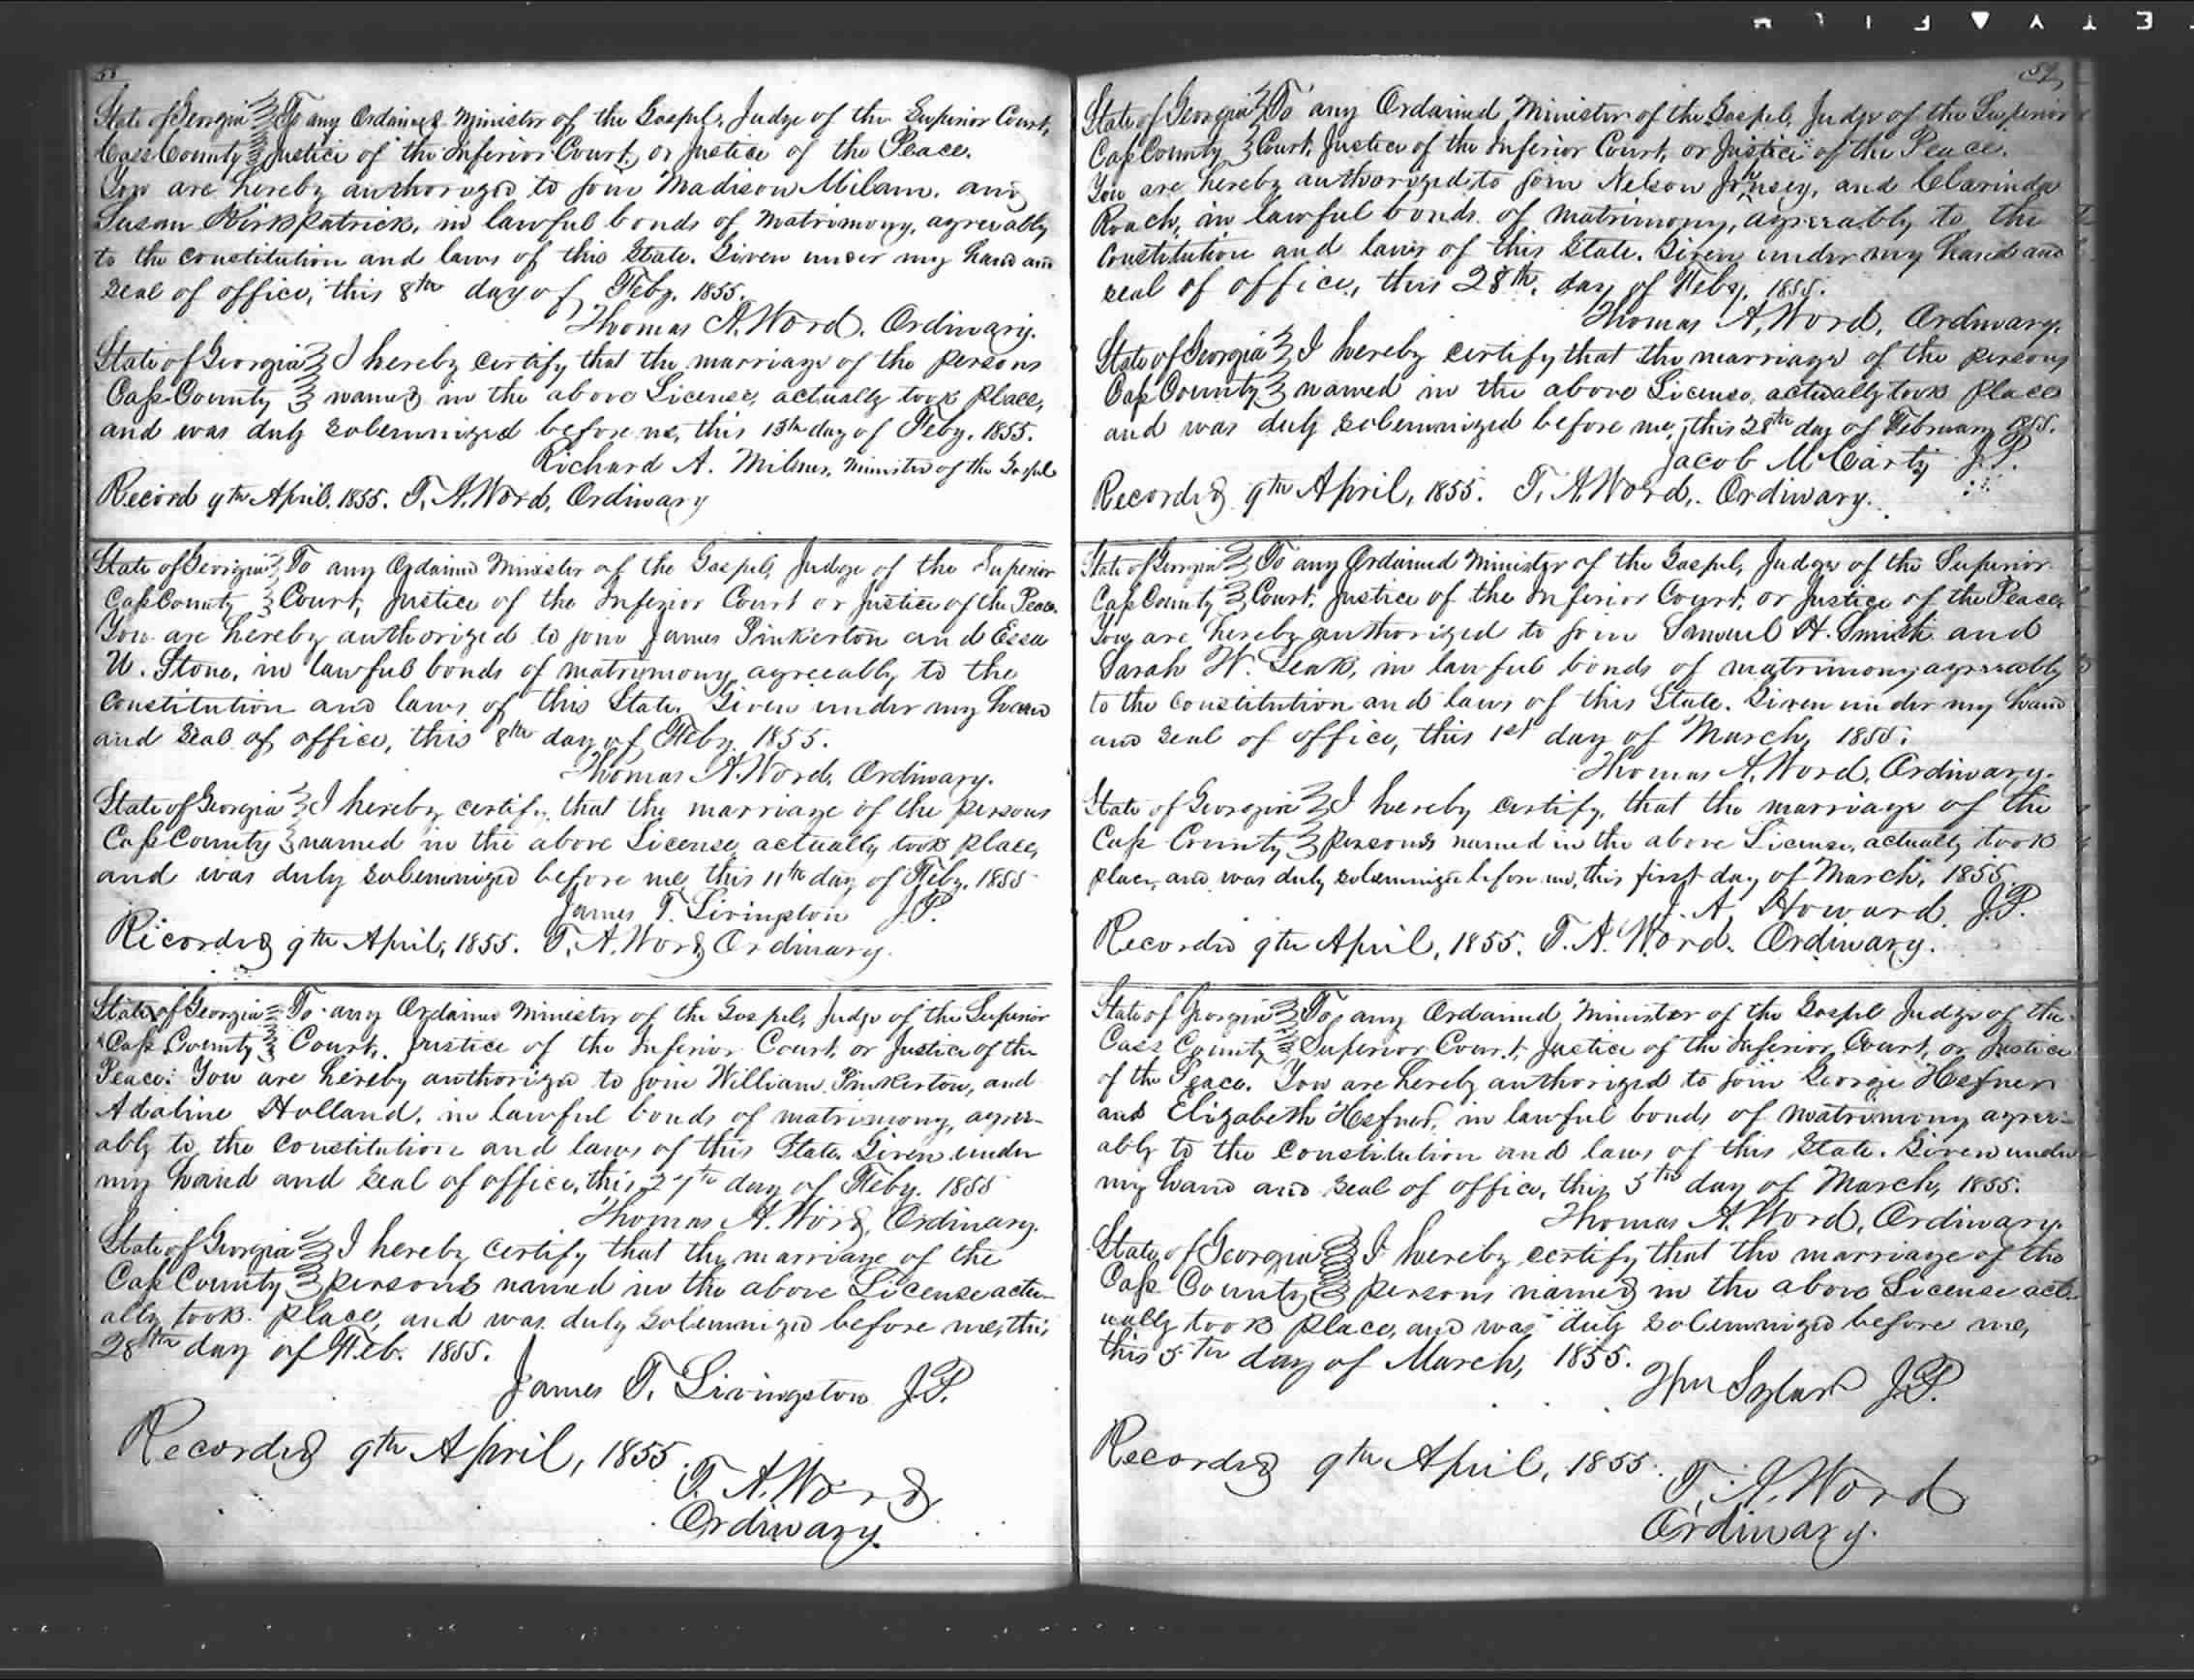 58
State of Georgia To any Ordained Minister of the Gospel, Judge of the Superior Court,
Cass County Justice of the Inferior Court, or Justice of the Peace.
You are hereby authorized to join Madison Milam, and
Susan Kirkpatrick, in lawful bonds of matrimony, agreeably
to the constitution and laws of this State. Given under my hand and
seal of office, this 8th day of Feby. 1855.
Thomas A. Word, Ordinary.
State of Georgia I hereby certify that the marriage of the persons
Cass County named in the above License, actually took place,
and was duly solemnized before me, this 15th day of Feby. 1855.
Richard A. Milner, Minister of the Gospel
Record 9th April, 1855. T. A. Word, Ordinary
State of Georgia To any Ordained Minister of the Gospel, Judge of the Superior
Cass County Court, Justice of the Inferior Court or Justice of the Peace.
You are hereby authorized to join James Pinkerton and Essa
U. Stone, in lawful bonds of matrimony agreeably to the
constitution and laws of this State. Given under my hand
and seal of office, this 8th day of Feby. 1855.
Thomas A. Word, Ordinary.
State of Georgia I hereby certify, that the marriage of the persons
Cass County named in the above License actually took place,
and was duly solemnized before me this 11th day of Feby. 1855
James T. Livingston J.P.
Recorded 9th April, 1855. T. A. Word Ordinary.
State of Georgia To any Ordained Minister of the Gospel, Judge of the Superior
Cass County Court, Justice of the Inferior Court, or Justice of the
Peace: You are hereby authorized to join William Pinkerton, and
Adaline Holland, in lawful bonds of matrimony, agree-
ably to the constitution and laws of this State. Given under
my hand and seal of office, this 27th day of Feby. 1855
Thomas A. Word, Ordinary.
State of Georgia I hereby certify that the marriage of the
Cass County persons named in the above License actu-
ally took place, and was duly solemnized before me, this
28th day of Feb. 1855.
James T. Livingston J.P.
Recorded 9th April, 1855.
T. A. Word
Ordinary.
59
State of Georgia To any Ordained Minister of the Gospel, Judge of the Superior
Cass County Court, Justice of the Inferior Court, or Justice of the Peace.
You are hereby authorized to join Nelson and Clarinda
Roach, in lawful bonds of matrimony, agreeably to the
constitution and laws of this State. Given under my hand and
seal of office, this 28th day of Feby. 1855.
Thomas A. Word, Ordinary.
State of Georgia I hereby certify that the marriage of the persons
Cass County named in the above License, actually took place
and was duly solemnized before me, this 28th day of February 1855.
Jacob McCarty J.P.
Recorded 9th April, 1855. T. A. Word, Ordinary.
State of Georgia To any Ordained Minister of the Gospel, Judge of the Superior
Cass County Court, Justice of the Inferior Court, or Justice of the Peace,
You are hereby authorized to join Samuel H. Smith and
Sarah W. Leak, in lawful bonds of matrimony agreeably
to the constitution and laws of this State. Given under my hand
and seal of office, this 1st day of March, 1855.
Thomas A. Word, Ordinary.
State of Georgia I hereby certify, that the marriage of the
Cass County persons named in the above License, actually took
place, and was duly solemnized before me, this first day of March, 1855.
J. A. Howard, J.P.
Recorded 9th April, 1855. T. A. Word, Ordinary.
State of Georgia To any Ordained Minister of the Gospel Judge of the
Cass County Superior Court, Justice of the Inferior Court, or Justice
of the Peace. You are hereby authorized to join George Hefner
and Elizabeth Hefner, in lawful bonds of matrimony agree-
ably to the constitution and laws of this State. Given under
my hand and seal of office, this 5th day of March, 1855.
Thomas A. Word, Ordinary.
State of Georgia I hereby certify that the marriage of the
Cass County persons named in the above License act-
ually took place, and was duly solemnized before me,
this 5th day of March, 1855.
Wm Sylar J.P.
Recorded 9th April, 1855.
T. A. Word
Ordinary.